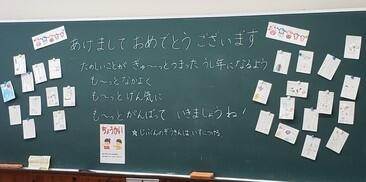 あけまして おめでとう ございます
たのしいことが ぎゅ～っとつまった うし年になるよう
も～っとなかよく
も～っとげん気に
も～っとがんばって いきましょうね!
ちょうかい
★じぶんのぞうきんは いすにつける